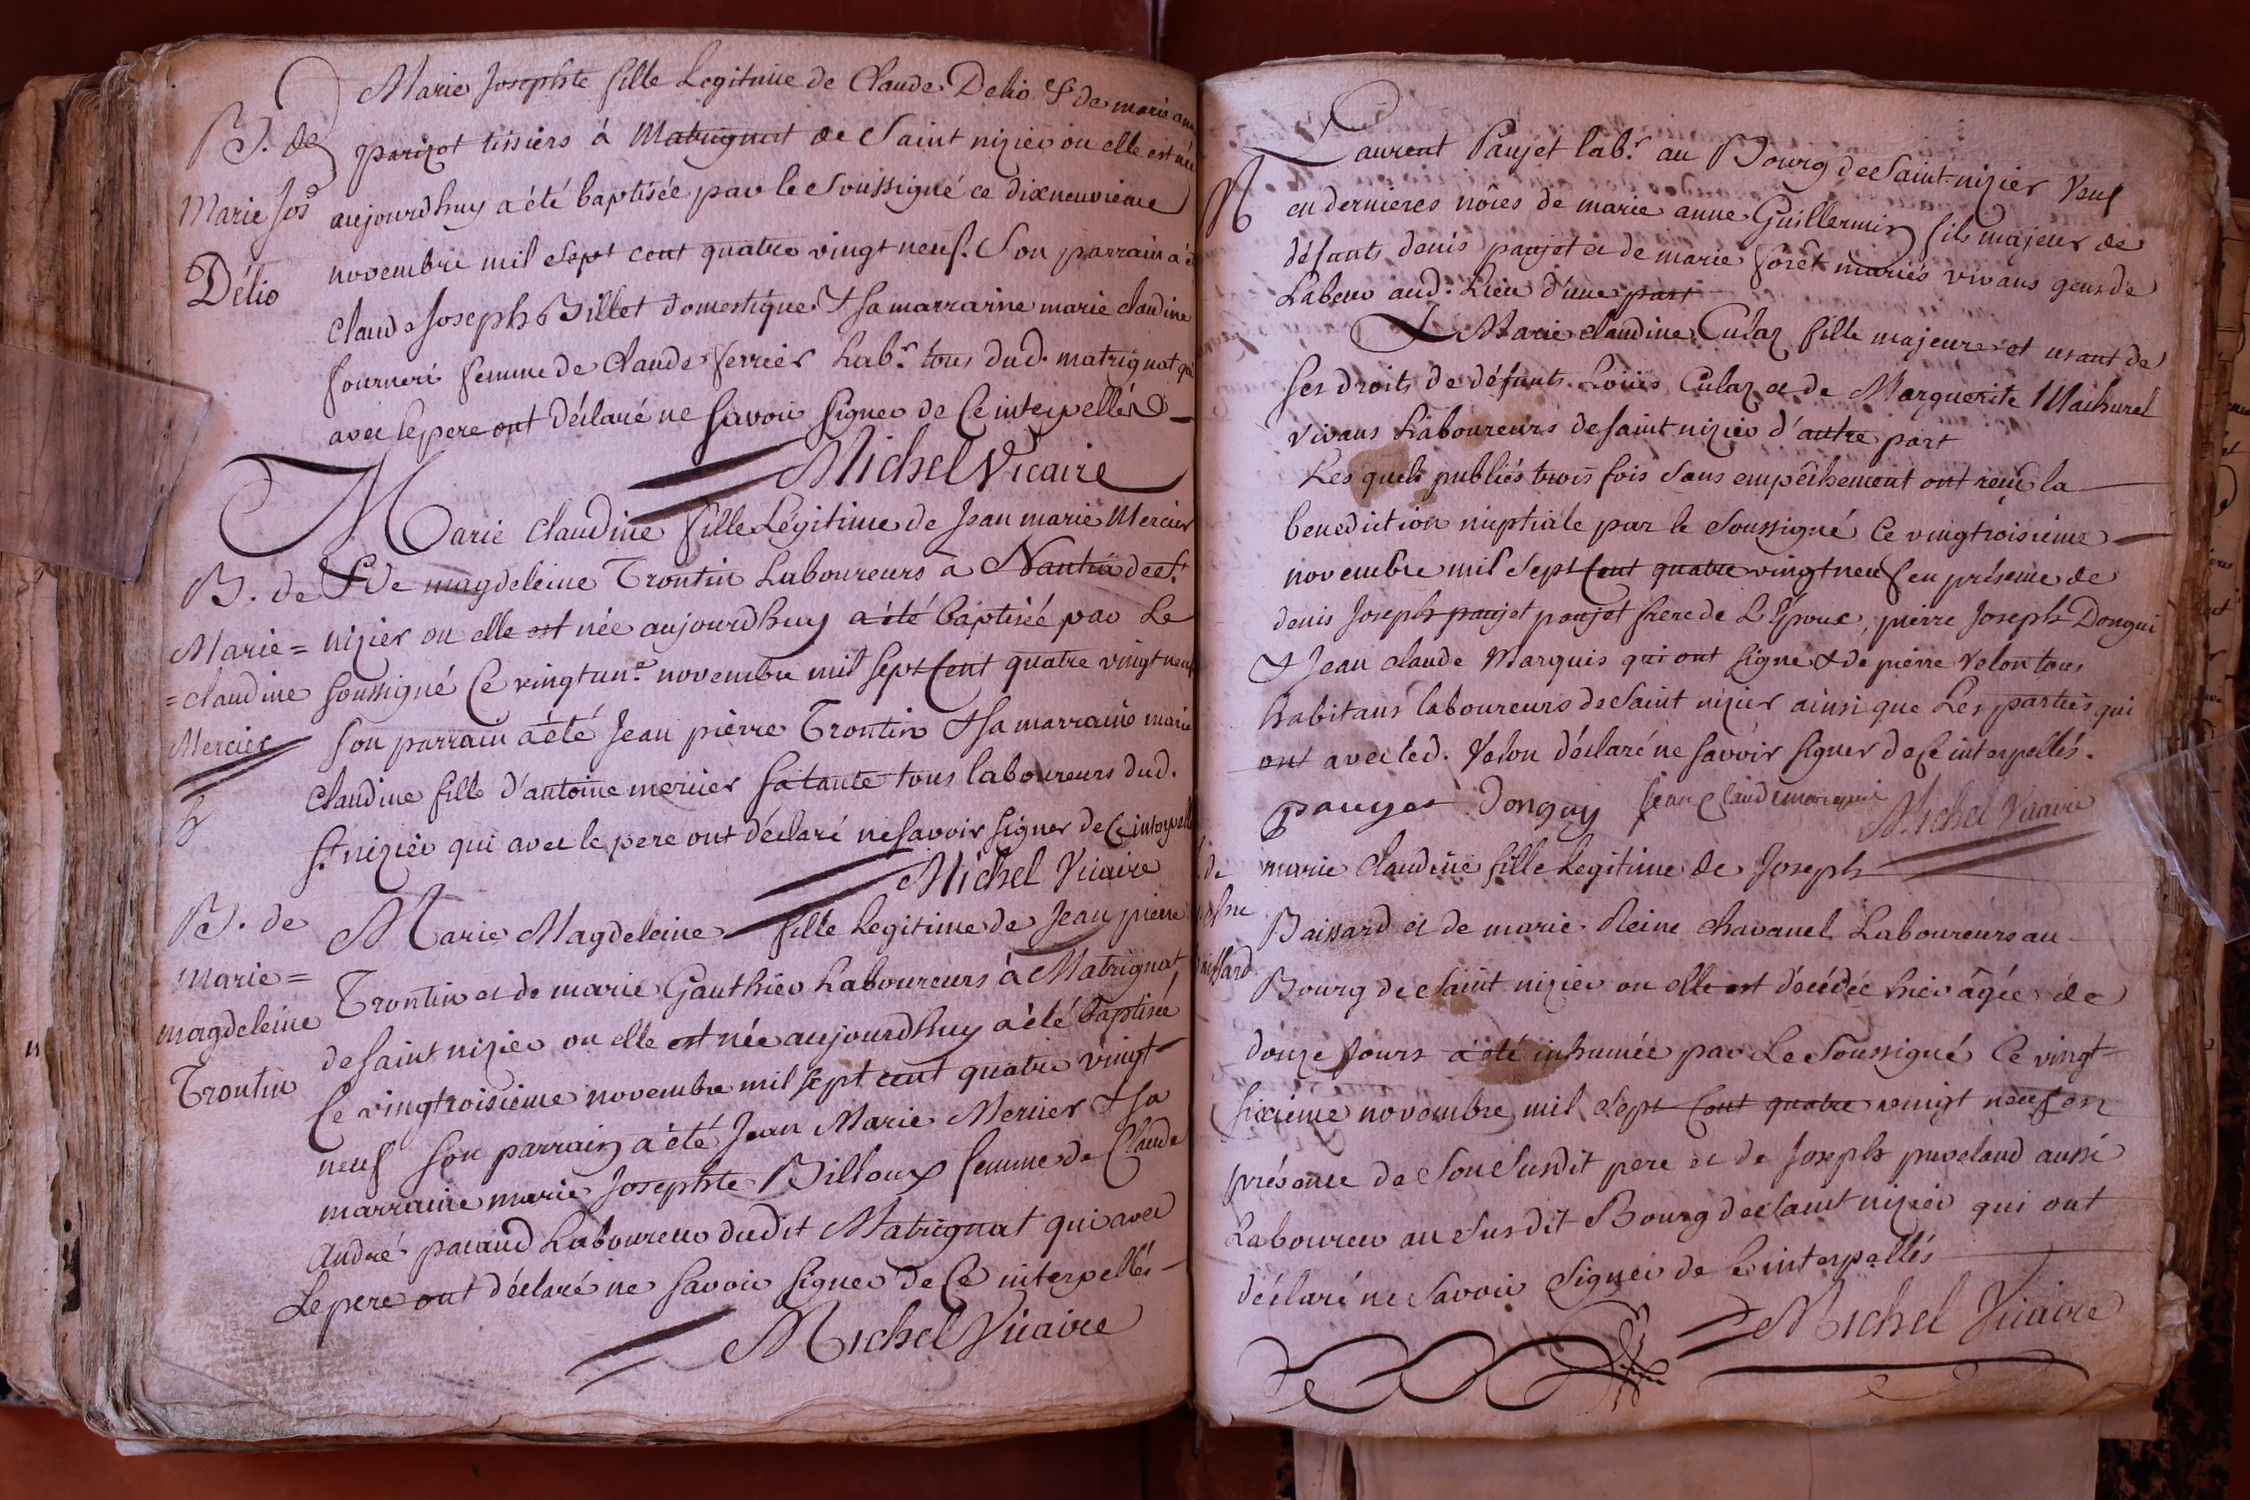 Marie Josephte fille Legitime de Claude Delio & de marie anne
B. de
parizot tissiers à Matrignat de Saint nizier ou elle est née
Marie Jos
aujourdhuy a été baptisée par le Soussigné ce dixneuvieme
Délio
novembre mil Sept cent quatre vingt neuf. Son parrain a é
claude Joseph Billet Domestique & sa marraine marie claudine
fourneri femme de claude ferrier Labr. tous dud. matrignat qui
avec le pere ont déclaré ne Savoir Signer de Ce interpellés
Michel Vicaire
Marie claudine fille Légitime de Jean marie Mercier
B. de
& de magdeleine Trontin Laboureurs à Nantua de St.
Marie =
nizier ou elle est née aujourdhuy a été baptisée par Le
= claudine
soussigné Ce vingtune. novembre mil sept Cent quatre vingt neuf
Mercier
Son parrain a été Jean pierre Trontin & sa marraine marie
claudine fille d'antoine mercier sa tante tous laboureurs dud.
St. nizier qui avec le pere ont déclaré ne Savoir signer de Ce interpellés
Michel Vicaire
B. de
Marie Magdeleine fille Legitime de Jean pierre
marie =
Trontin et de marie Gauthier Laboureurs à Matrignat
magdeleine
de Saint nizier ou elle est née aujourdhuy a été baptisée
Trontin
Ce vingtroisieme novembre mil sept cent quatre vingt
neuf Son parrain a été Jean Marie Mercier & sa
marraine marie Josephte Billoux femme de Claude
André pacaud Laboureur dudit Matrignat qui avec
Le pere ont déclaré ne Savoir Signer de Ce interpellés
Michel Vicaire
Laurent Paujet labr. au Bourg de Saint nizier Veuf
en dernieres nôces de marie anne Guillermin fils majeur de
défunts denis paujet et de marie forêt mariés vivans gens de
Labeur aud. Lieu d'une part
& Marie claudine Culaz fille majeure et usant de
ses droits de défunts Loüis Culaz et de Marguerite Machurel
vivans Laboureurs de Saint nizier d'autre part
Les quels publiés trois fois Sans empêchement ont reçu la
benediction nuptiale par le Soussigné Ce vingtroisieme
novembre mil Sept Cent quatre vingt neuf en présence de
denis Joseph paujet paujet frere de L'Epoux, pierre Joseph Dongui
& Jean claude Marquis qui ont signe & de pierre Velon tous
habitans laboureurs de Saint nizier ainsi que Les parties qui
ont avec led. Velon déclaré ne Savoir Signer de Ce interpellés.
pauget Donguy Jean Claude marquis Michel Vicaire
marie Claudine fille Legitime de Joseph
Baissard et de marie Reine Chavanel Laboureurs au
Bourg de Saint nizier ou elle est décédée hier âgée de
douze Jours a été inhumée par Le Soussigné Ce vingt
sixieme novembre mil Sept Cent quatre vingt neuf en
présence de Son Susdit pere et de Joseph Laboureur au Susdit Bourg de Saint nizier qui ont
déclaré ne Savoir Signer de Ce interpellés
Michel Vicaire